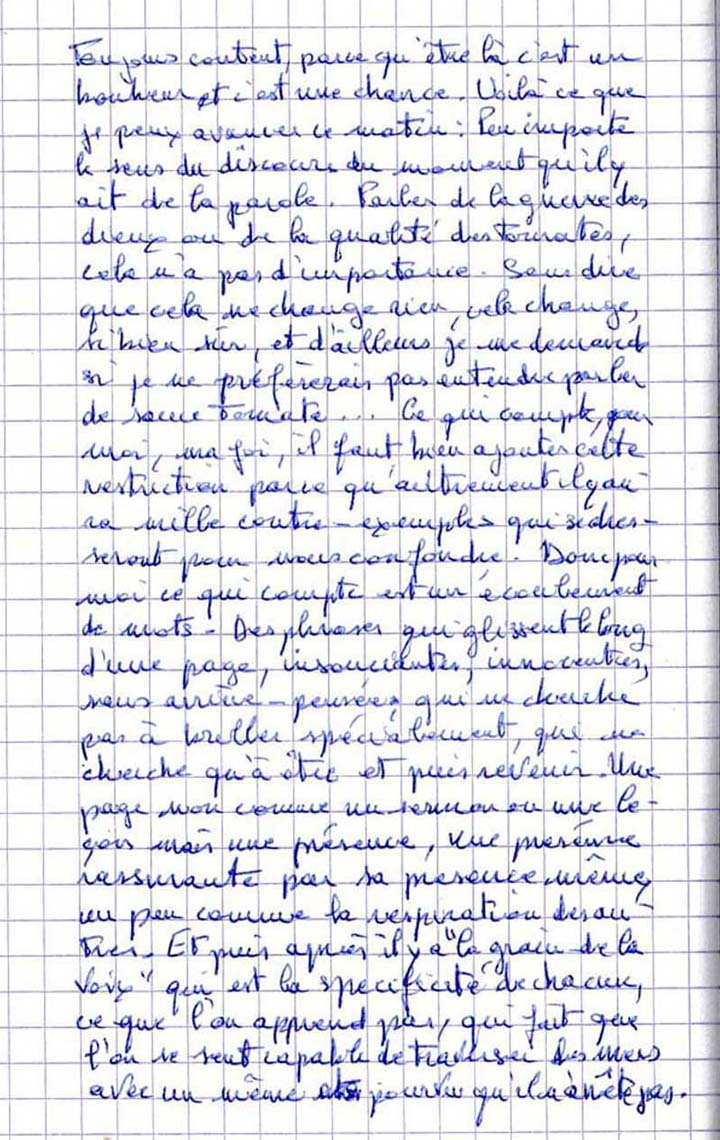 Toujours content, parce qu'être là c'est un
bonheur et c'est une chance. Voilà ce que
je peux avancer ce matin : Peu importe
le sens du discours du moment qu'il y
ait de la parole. Parler de la guerre des
dieux ou de la qualité des tomates,
cela n'a pas d'importance. Sans dire
que cela ne change rien, cela change,
si bien sûr, et d'ailleurs je me demande
si je ne préfèrerais pas entendre parler
de sauce tomate... Ce qui compte, pour
moi, ma foi, il faut bien ajouter cette
restriction parce qu'autrement il y au-
ra mille contre-exemples qui se dres-
seront pour nous confondre. Donc pour
moi ce qui compte est un écoulement
de mots - Des phrases qui glissent le long
d'une page, insouciantes, innocentes,
sans arrière-pensées, qui ne cherche
pas à briller spécialement, qui ne
cherche qu'à être et puis revenir. Une
page non comme un sermon ou une le-
çon mais une présence, une présence
rassurante par sa présence même,
un peu comme la respiration des au-
tres. Et puis après il y a "la grain de la
voix" qui est la spécificité de chacun,
ce que l'on apprend pas, qui fait que
l'on se sent capable de traverser des mers
avec un même pourvu qu'il n'arrête pas.